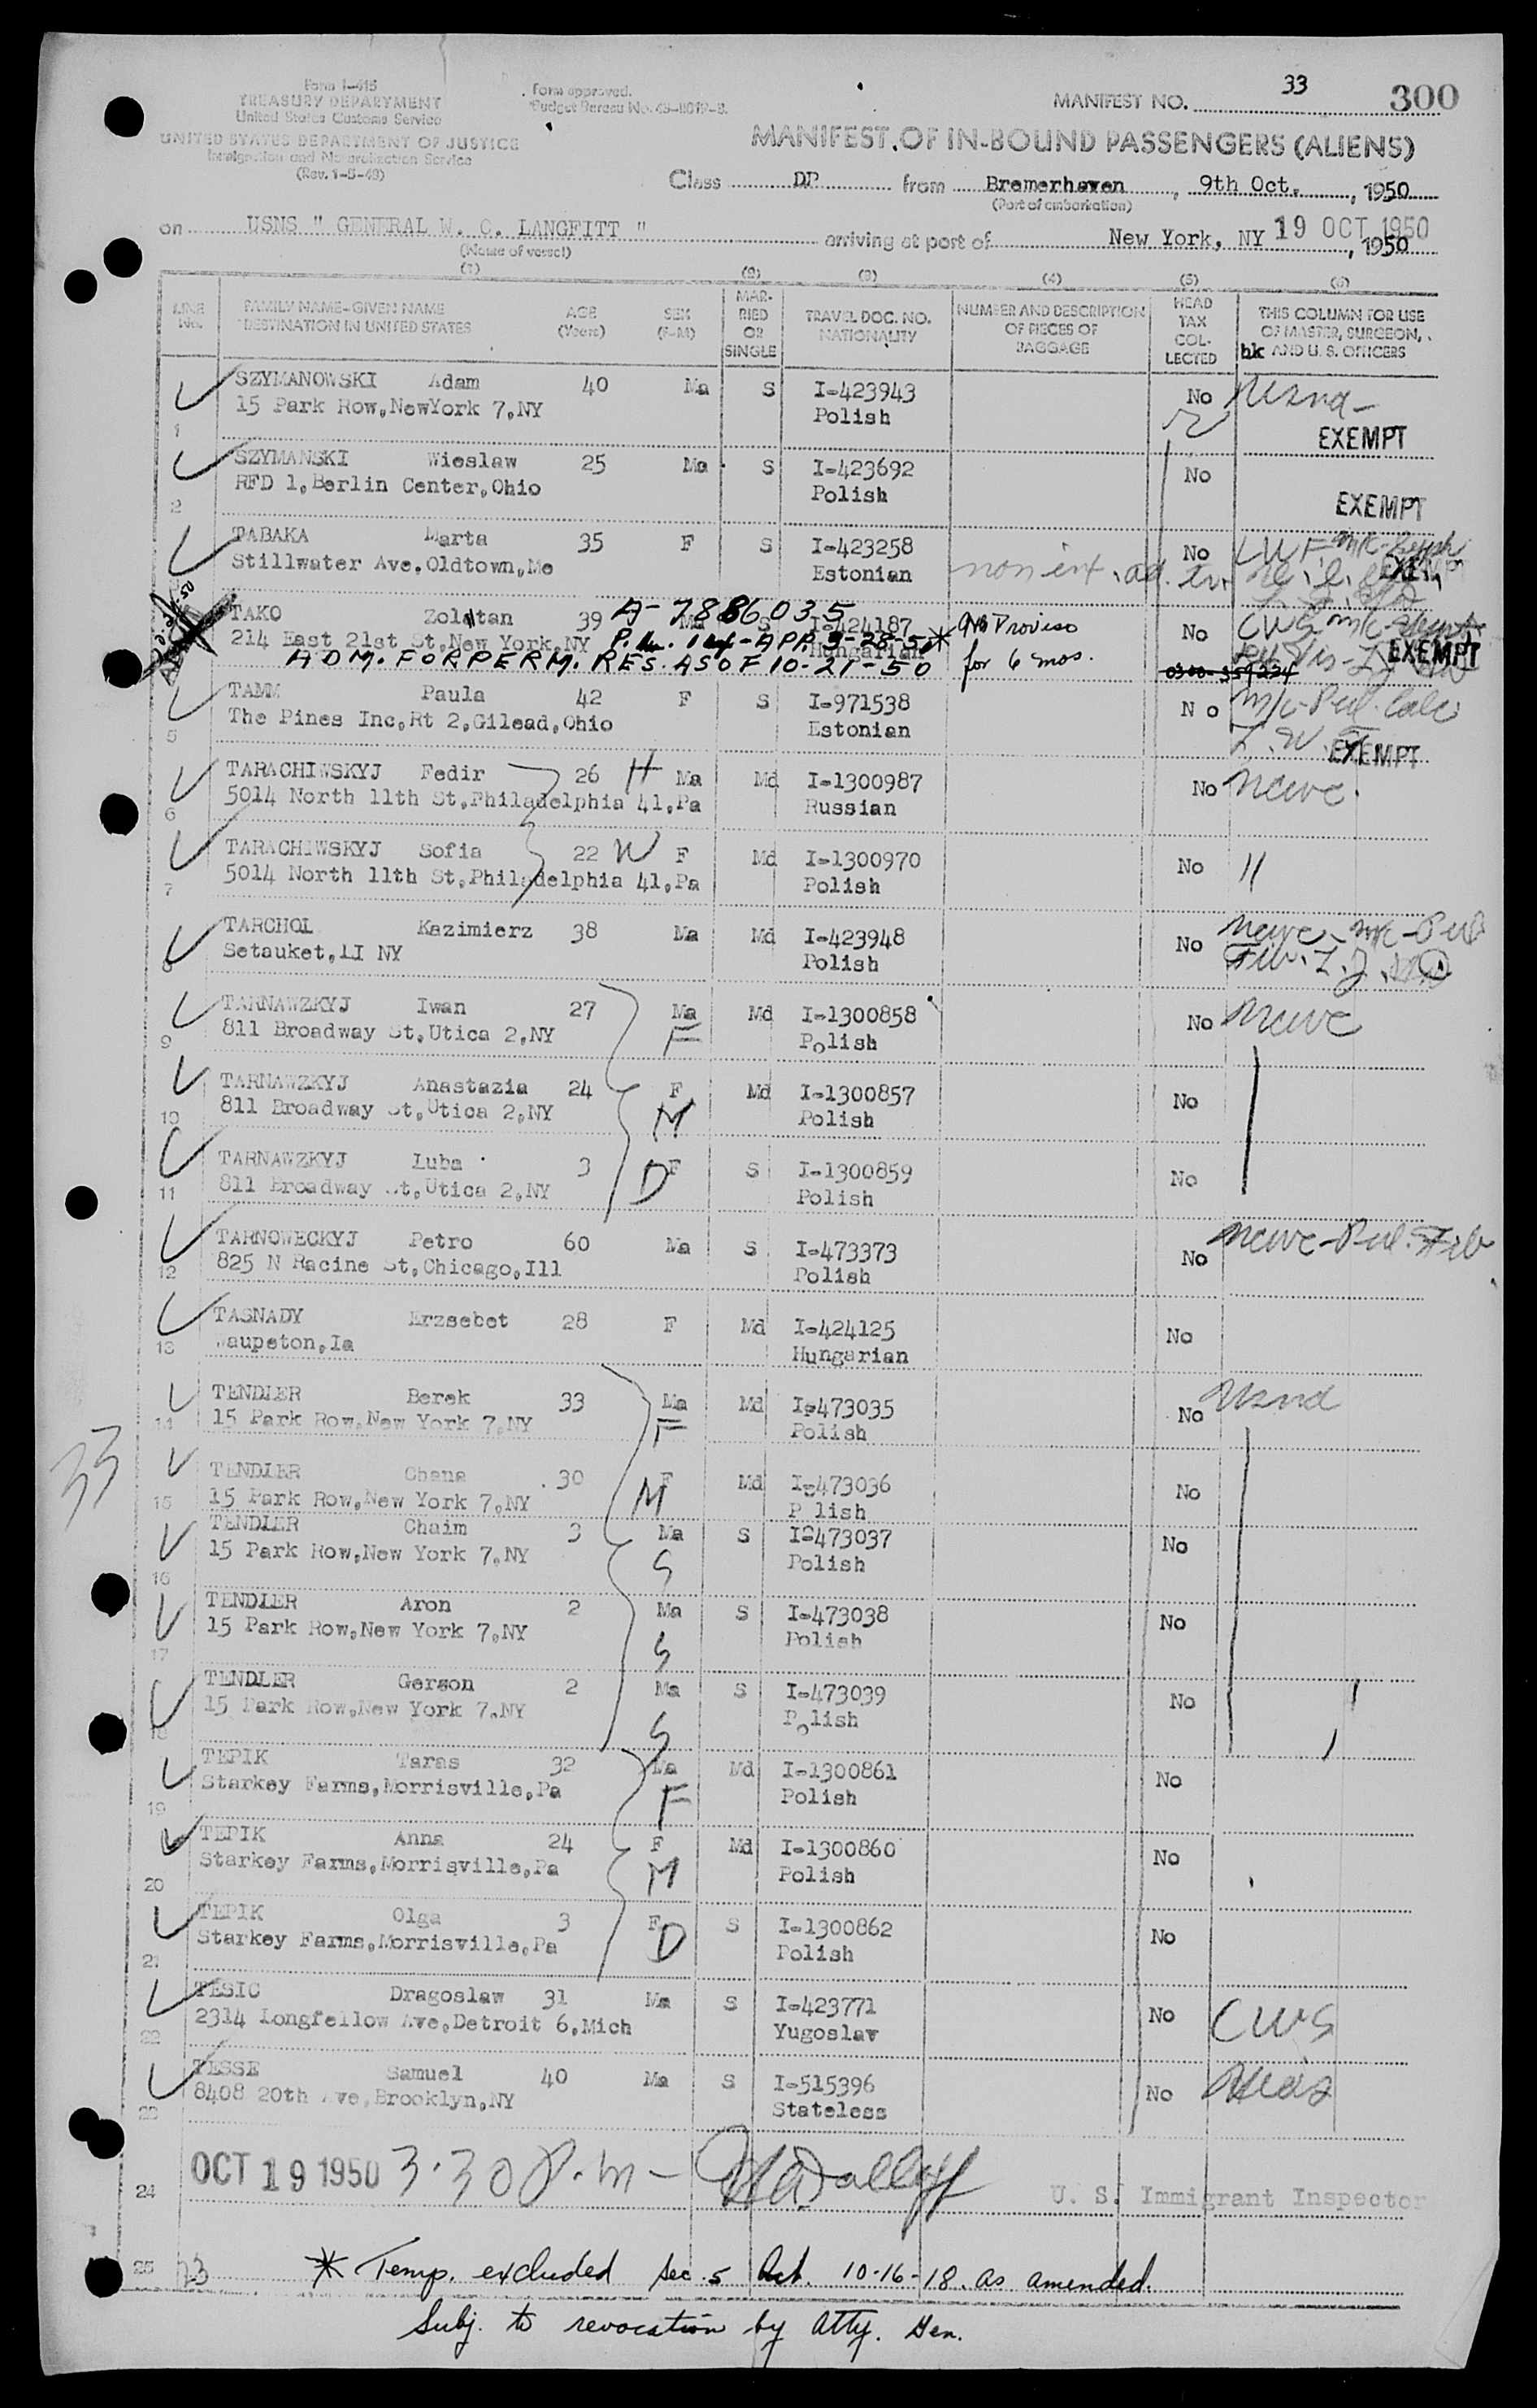 33
300
Form I-415
TREASURY DEPARTMENT
United States Customs Service
UNITED STATES DEPARTMENT OF JUSTICE
Immigration and Naturalization Service
(Rev. 1-5-49)
Form approved.
Budget Bureau No.
MANIFEST NO.
MANIFEST OF IN-BOUND PASSENGERS (ALIENS)
Class DP from Bremerhaven, 9th Oct., 1950
(Port of embarkation)
on USNS " GENERAL W. C. LANGFITT " arriving at port of New York, NY 19 OCT 1950, 1950
(Name of vessel)
(1) (2) (3) (4) (5) (6)
LINE No. FAMILY NAME-GIVEN NAME DESTINATION IN UNITED STATES AGE (Years) SEX (F-M) MARRIED OR SINGLE TRAVEL DOC. NO. NATIONALITY NUMBER AND DESCRIPTION OF PIECES OF BAGGAGE HEAD TAX COLLECTED THIS COLUMN FOR USE OF MASTER, SURGEON, AND U. S. OFFICERS
hk
SZYMANOWSKI Adam 40 Ma S I-423943 No
1 15 Park Row,NewYork 7,NY Polish EXEMPT
SZYMANSKI Wieslaw 25 Ma S I-423692 No
2 RFD 1,Berlin Center,Ohio Polish EXEMPT
TABAKA Marta 35 F S I-423258 No LWF
Stillwater Ave,Oldtown,Me Estonian EXEMPT
TAKO Zoltan 39 A-7886035 Ma S I-424187 9th Proviso No CWS
214 East 21st St,New York,NY APP. 9-28-50* Hungarian for 6 mos. EXEMPT
ADM. FOR PERM. RES. AS OF 10-21-50 0300-359234
TAMM Paula 42 F S I-971538 No
5 The Pines Inc,Rt 2,Gilead,Ohio Estonian EXEMPT
TARACHIWSKYJ Fedir 26 H Ma Md I-1300987 No
6 5014 North 11th St,Philadelphia 41,Pa Russian
TARACHIWSKYJ Sofia 22 W F Md I-1300970 No "
7 5014 North 11th St,Philadelphia 41,Pa Polish
TARCHOL Kazimierz 38 Ma Md I-423948 No
8 Setauket,LI NY Polish
TARNAWZKYJ Iwan 27 Ma Md I-1300858 No
9 811 Broadway St,Utica 2,NY F Polish
TARNAWZKYJ Anastazia 24 F Md I-1300857 No
10 811 Broadway St,Utica 2,NY M Polish
TARNAWZKYJ Luba 3 F S I-1300859 No
11 811 Broadway St,Utica 2,NY D Polish
TARNOWECKYJ Petro 60 Ma S I-473373 No
12 825 N Racine St,Chicago,Ill Polish
TASNADY Erzsebet 28 F Md I-424125 No
13 aupeton,Ia Hungarian
TENDLER Berek 33 Ma Md I-473035 No
14 15 Park Row,New York 7,NY F Polish
33
TENDLER Chana 30 F Md I-473036 No
15 15 Park Row,New York 7,NY M P lish
TENDLER Chaim 3 Ma S I-473037 No
16 15 Park Row,New York 7,NY S Polish
TENDLER Aron 2 Ma S I-473038 No
17 15 Park Row,New York 7,NY S Polish
TENDLER Gerson 2 Ma S I-473039 No
18 15 Park Row,New York 7,NY S Polish
TEPIK Taras 32 Ma Md I-1300861 No
19 Starkey Farms,Morrisville,Pa F Polish
TEPIK Anna 24 F Md I-1300860 No
20 Starkey Farms,Morrisville,Pa M Polish
TEPIK Olga 3 F S I-1300862 No
21 Starkey Farms,Morrisville,Pa D Polish
TESIC Dragoslaw 31 Ma S I-423771 No CWS
22 2314 Longfellow Ave,Detroit 6,Mich Yugoslav
TESSE Samuel 40 Ma S I-515396 No Hias
23 8408 20th Ave,Brooklyn,NY Stateless
OCT 19 1950 3.30 P.m -
24 U. S. Immigrant Inspector
25 23 * Temp. excluded sec. 5 Act. 10-16-18. as amended.
Subj. to revocation by Atty. Gen.